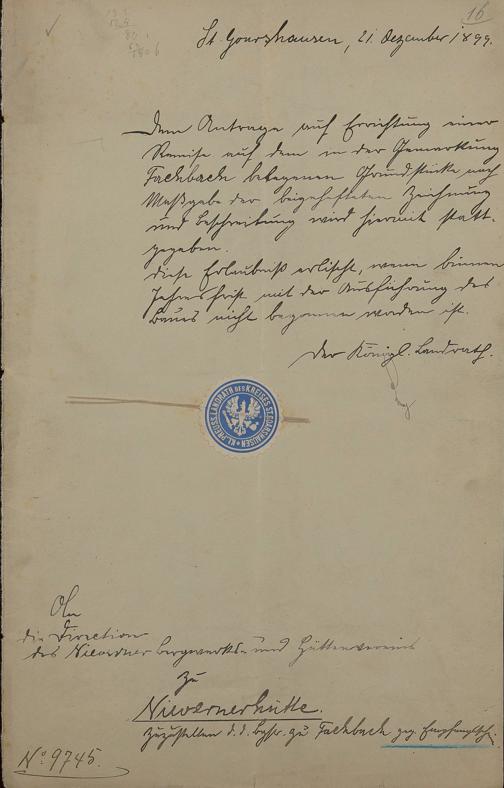 16
St. Goarshausen, 21. Dezember 1899.
Dem Antrage auf Errichtung einer
Remise auf dem in der Gemarkung
Fachbach belegenen Grundstücke nach
Maßgabe der beigehefteten Zeichnung
und Beschreibung wird hiermit statt-
gegeben.
Diese Erlaubniß erlischt, wenn binnen
Jahresfrist mit der Ausführung des
Baues nicht begonnen worden ist.
Der Königl. Landrath.
KL. PREUSS. LANDRATH DES KREISES ST. GOARSHAUSEN
An
die Direction
des Nieverner Bergwerks- und Hüttenvereins
zu
Nievernerhütte.
zuzustellen d. d. zu Fachbach geg. Empfangsch.
No 9745.